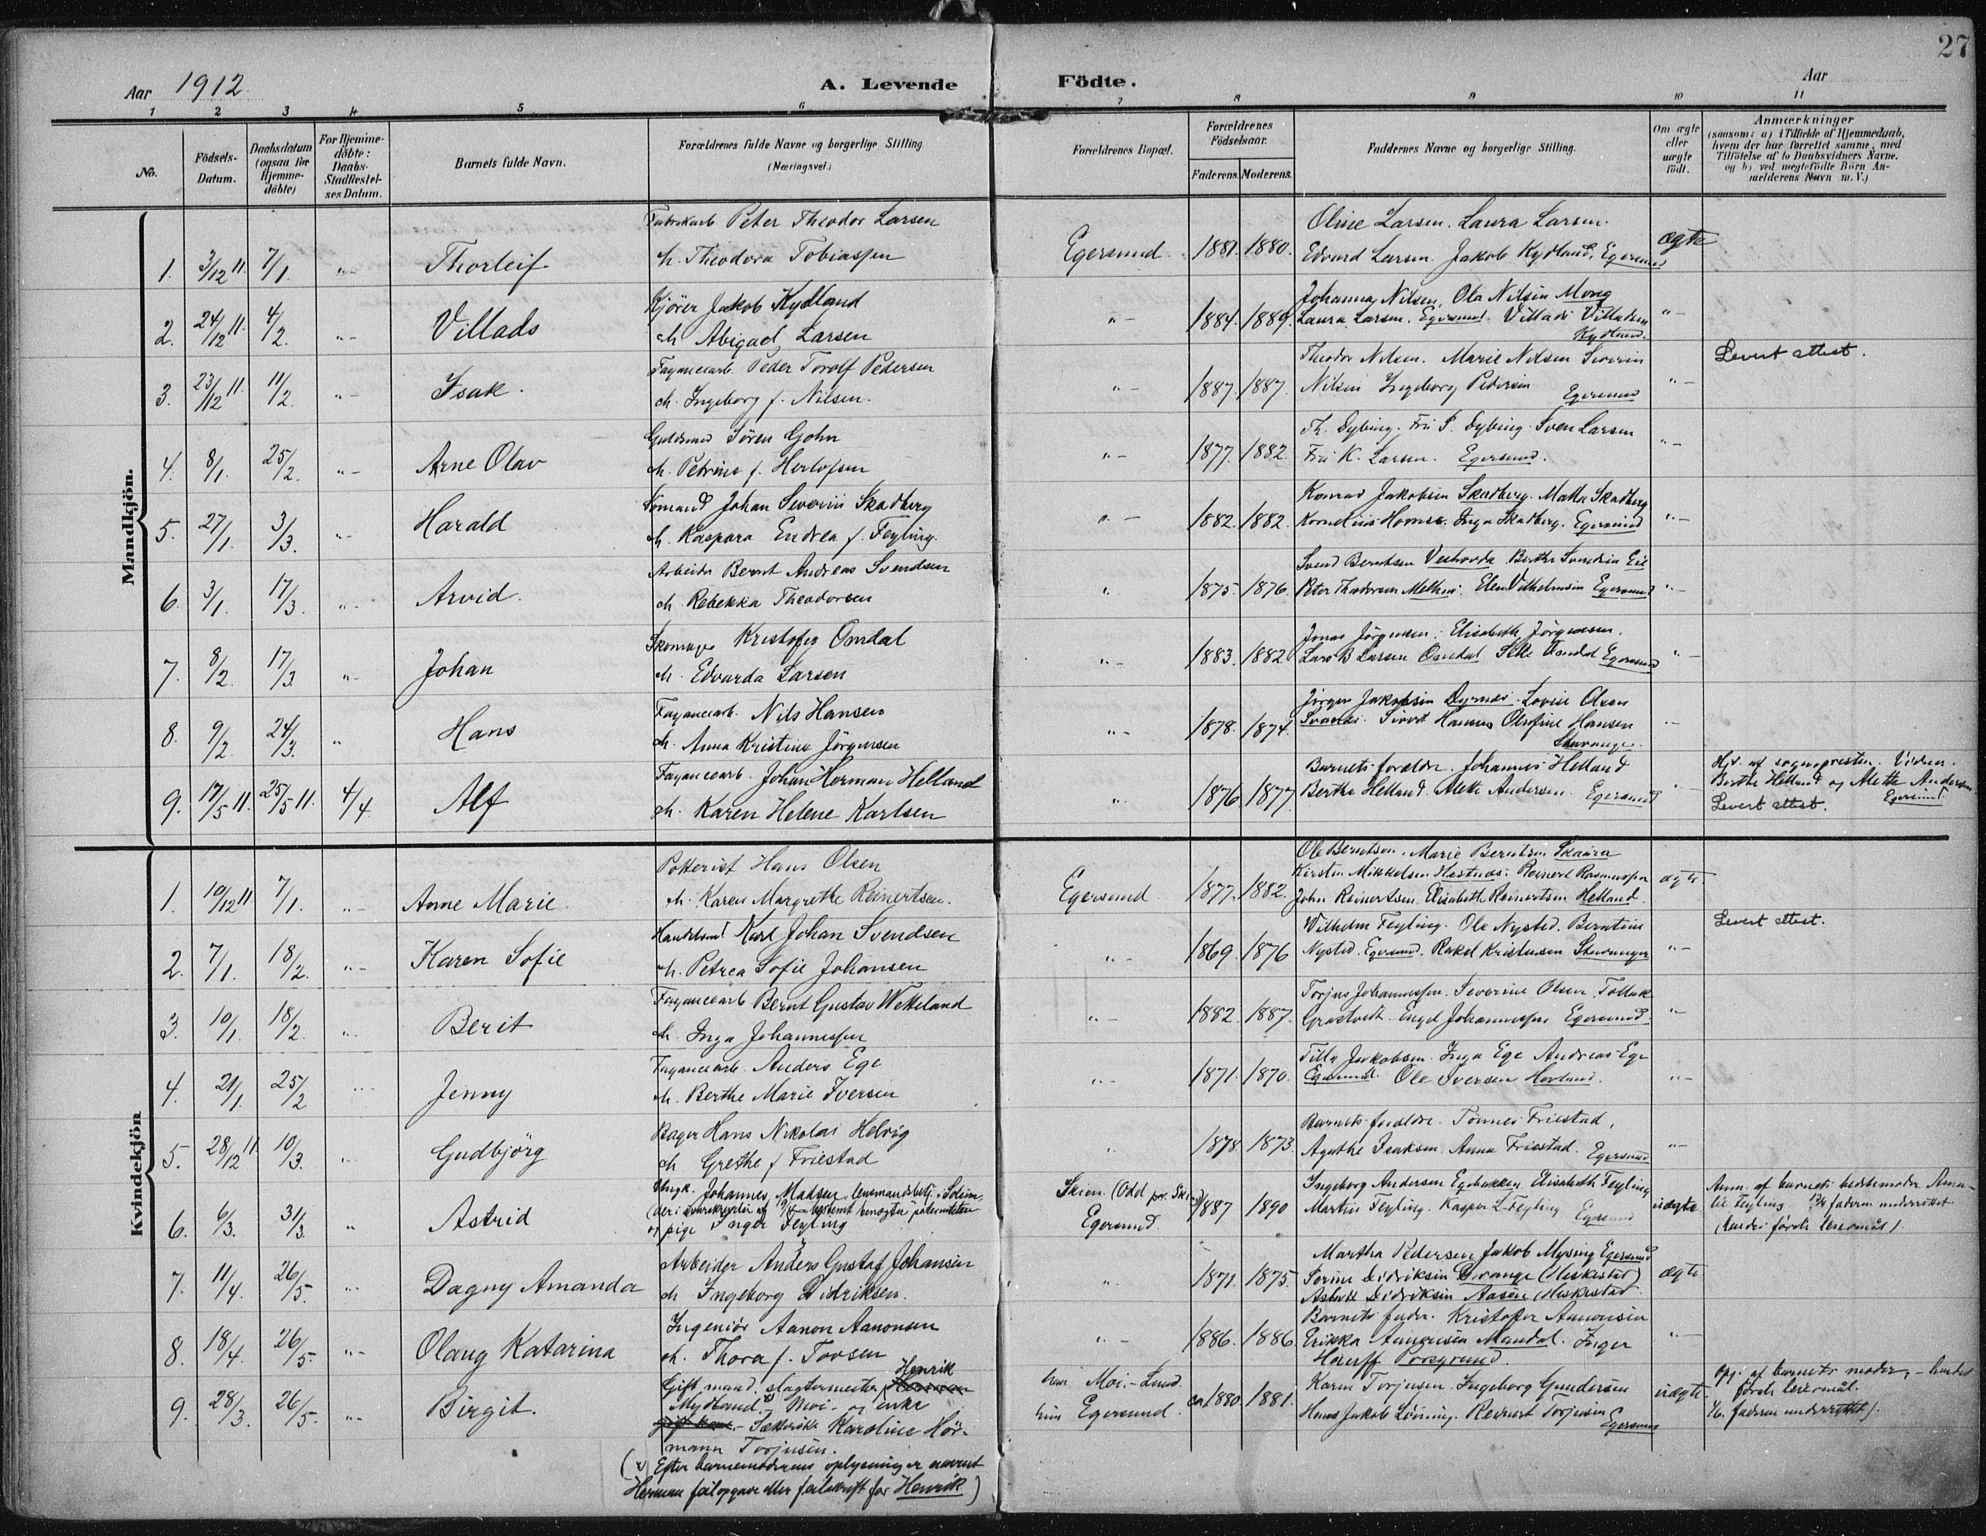 27
Aar 1912.
A. Levende Födte.
Aar
1 2 3 4 5 6 7 8 9 10 11
No.
Födsels-Datum.
Daabsdatum (ogsaa for Hjemmedöbte)
For Hjemmedöbte: Daabs-Stadfæstelses Datum.
Barnets fulde Navn.
Forældrenes fulde Navne og borgerlige Stilling (Næringsvei.)
Forældrenes Bopæl.
Forældrenes Födselsaar.
Faderens. Moderens.
Faddernes Navne og borgerlige Stilling.
Om ægte eller uægte födt.
Anmærkninger
(saasom: a) i Tilfælde af Hjemmedaab, hvem der har forrettet samme, med Tilföielse af to Daabsvidners Navne. og b) ved uegtefödte Börn Anmelderens Navn m. V.)
Mandkjön.
Fabrikarb Peter Theodor Larsen Oline Larsen. Laura Larsen.
1. 3/12 11. 7/1 "- Thorleif h. Theodora Tobiassen Egersund 1881. 1880. Edvard Larsen. Jakob Kydland, Egersund ægte
Kjörer Jakob Kydland Johanna Nilsen, Ola Nilsen Mong
2. 24/12 11. 4/2. "- Villads h Abigael Larsen "- 1884. 1889. Laura Larsen. Egersund. Villads Villadsen Kydland. "-
Fayancearb. Peder Torolf Pedersen Theodor Nilsen. Marie Nilsen Severin Levert attest.
3. 23/12 11. 11/2. "- Isak. h. Ingeborg f. Nilsen. "- 1887. 1887. Nilsen Ingeborg Pedersen Egersund "-
Guldsmed Sören Gohn Th. Dybing. Fru P. Dybing. Sven Larsen
4. 8/1. 25/2. "- Arne Olav h. Petrine f. Herlofsen "- 1877. 1882. Fru K. Larsen. Egersund. "-
Sömand Johan Severin Skadberg Konrad Jakobsen Skadberg. Malla Skadberg
5. 27/1. 3/3. "- Harald h. Kaspara Endrea f. Feyling. "- 1882. 1882. Kornelius Inga Skadberg. Egersund "-
Arbeider Bernt Andreas Svendsen Svend Berntsen Birthe Svendsen Eie
6. 3/1. 17/3. "- Arvid. h. Rebekka Theodorsen " 1875. 1876. Peter Theodorsen Elen Vilhelmsen Egersund "-
Skomager Kristofer Omdal Jonas Jörgensen. Elisabeth Jörgensen.
7. 8/2. 17/3. "- Johan h. Edvarda Larsen "- 1883. 1882 Lars B Larsen Omdal Omdal Egersund "-
Fayancearb. Nils Hansen Jörgen Jakobsen Lovise Olsen
8. 9/2 24/3. " Hans h. Anna Kristine Jörgensen "- 1878. 1874. Sivert Hansen Olufine Hansen Stavanger. "-
Fayancearb. Johan Herman Helland Barnets forældre. Johannes Helland Hjd. af sognepresten.
9. 17/5 11. 25/5 11. 4/4 Alf h. Karen Helene Karlsen " 1876. 1877. Berthe Helland. Alette Andersen. Egersund "- Birthe Helland og Alette Andersen. Egersund. Levert attest.
Kvindekjön
Potterist Hans Olsen Ole Berntsen. Marie Berntsen Skaara
1. 10/12 11 7/1. "- Anne Marie h. Karen Margrethe Reinertsen. Egersund 1877. 1882. Kirsten Mikkelsen Hestnes. Reinert Rasmussen John Reinertsen. Elisabeth Reinertsen Helland. ægte
Handelsmd Karl Johan Svendsen Wilhelm Feyling. Ole Nysted. Berntine Levert attest.
2. 7/1. 18/2. "- Karen Sofie h. Petrea Sofie Johansen "- 1869. 1876 Nysted. Egersund. Rakel Kristensen Stavanger "-
Fayancearb Bernt Gustav Wetteland Torjus Johannessen. Severine Olsen. Tollak
3. 10/1 18/2. " Berit h. Inga Johannessen "- 1882 1887. Engel Johannessen Egersund "-
Fayancearb. Anders Ege Tilla Jakobsen. Inga Ege Andreas Ege
4. 21/1. 25/2 "- Jenny h. Berthe Marie Iversen "- 1871. 1870. Egersund. Ole Iversen Hovland. "-
Bager Hans Nikolai Helvig Barnets forældre. Tönnes Friestad,
5. 28/12 11 10/3. " Gudbjörg h Grethe f Friestad " 1878. 1873. Agathe Isaksen. Anna Friestad. Egersund "-
Ungk. Johannes Madsen, lensmandsbetj. i Solum Skien (Odd pr. Skien) Ingeborg Andersen Egebakken Elisabeth Feyling Anm. af barnets bedstemoder Amalie Feyling.
6. 6/3. 31/3. " Astrid og pige Inger Feyling Egersund 1887 1890 Martin Feyling. Kaspar L. Feyling Egersund uægte faderen underrettet (hendes förste leiermål).
Arbeider Anders Gustaf Johansen Martha Pedersen Jakob Mysing Egersund
7. 11/4. 26/5. " Dagny Amanda h. Ingeborg Didriksen. " 1871. 1875. Serine Didriksen (Heskestad) Didriksen Aasen Heskestad. ægte
Ingeniör Aanon Aanonsen Barnets fader. Kristofer Aanonsen
8. 18/4. 26/5. "- Olaug Katarina h. Thora f. Tovsen "- 1886. 1886. Erikka Aanonsen Mandal. Inger Porsgrund. "-
Gift mand. slagtermester Henrik han Moi. Lund. Karen Torjusen. Ingeborg Gundersen Opg. af barnets moder, - hendes
9. 28/3. 26/5. "- Birgit. Mydland, Moi. og enke Karoline Hörmann Torjusen. hun Egersund. ca 1880. 1881. Hans Jakob Löining. Reinert Torjusen Egersund uægte. förste leiermål. faderen underrettet).
(x) Efter barnemoderens oplysning er navnet
Herman feilopgave eller feilskrift for Henrik)